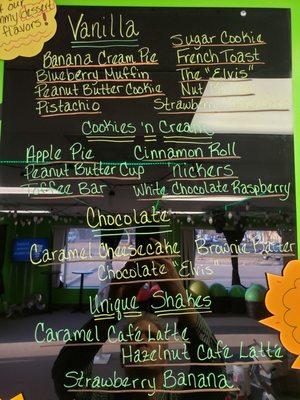 our
yummy dessert
flavors!
Vanilla
Banana Cream Pie Sugar Cookie
Blueberry Muffin French Toast
Peanut Butter Cookie The "Elvis"
Pistachio Nut
Strawberry
Cookies 'n Cream
Apple Pie Cinnamon Roll
Peanut Butter Cup nickers
Toffee Bar White Chocolate Raspberry
Chocolate
Caramel Cheesecake Brownie Batter
Chocolate "Elvis"
Unique Shakes
Caramel Cafe Latte
Hazelnut Cafe Latte
Strawberry Banana